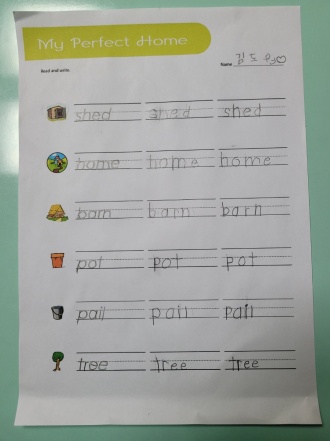 My Perfect Home
Read and write.
Name 김도
shed shed shed
home home home
barn barn barn
pot pot pot
pail pail pail
tree tree tree